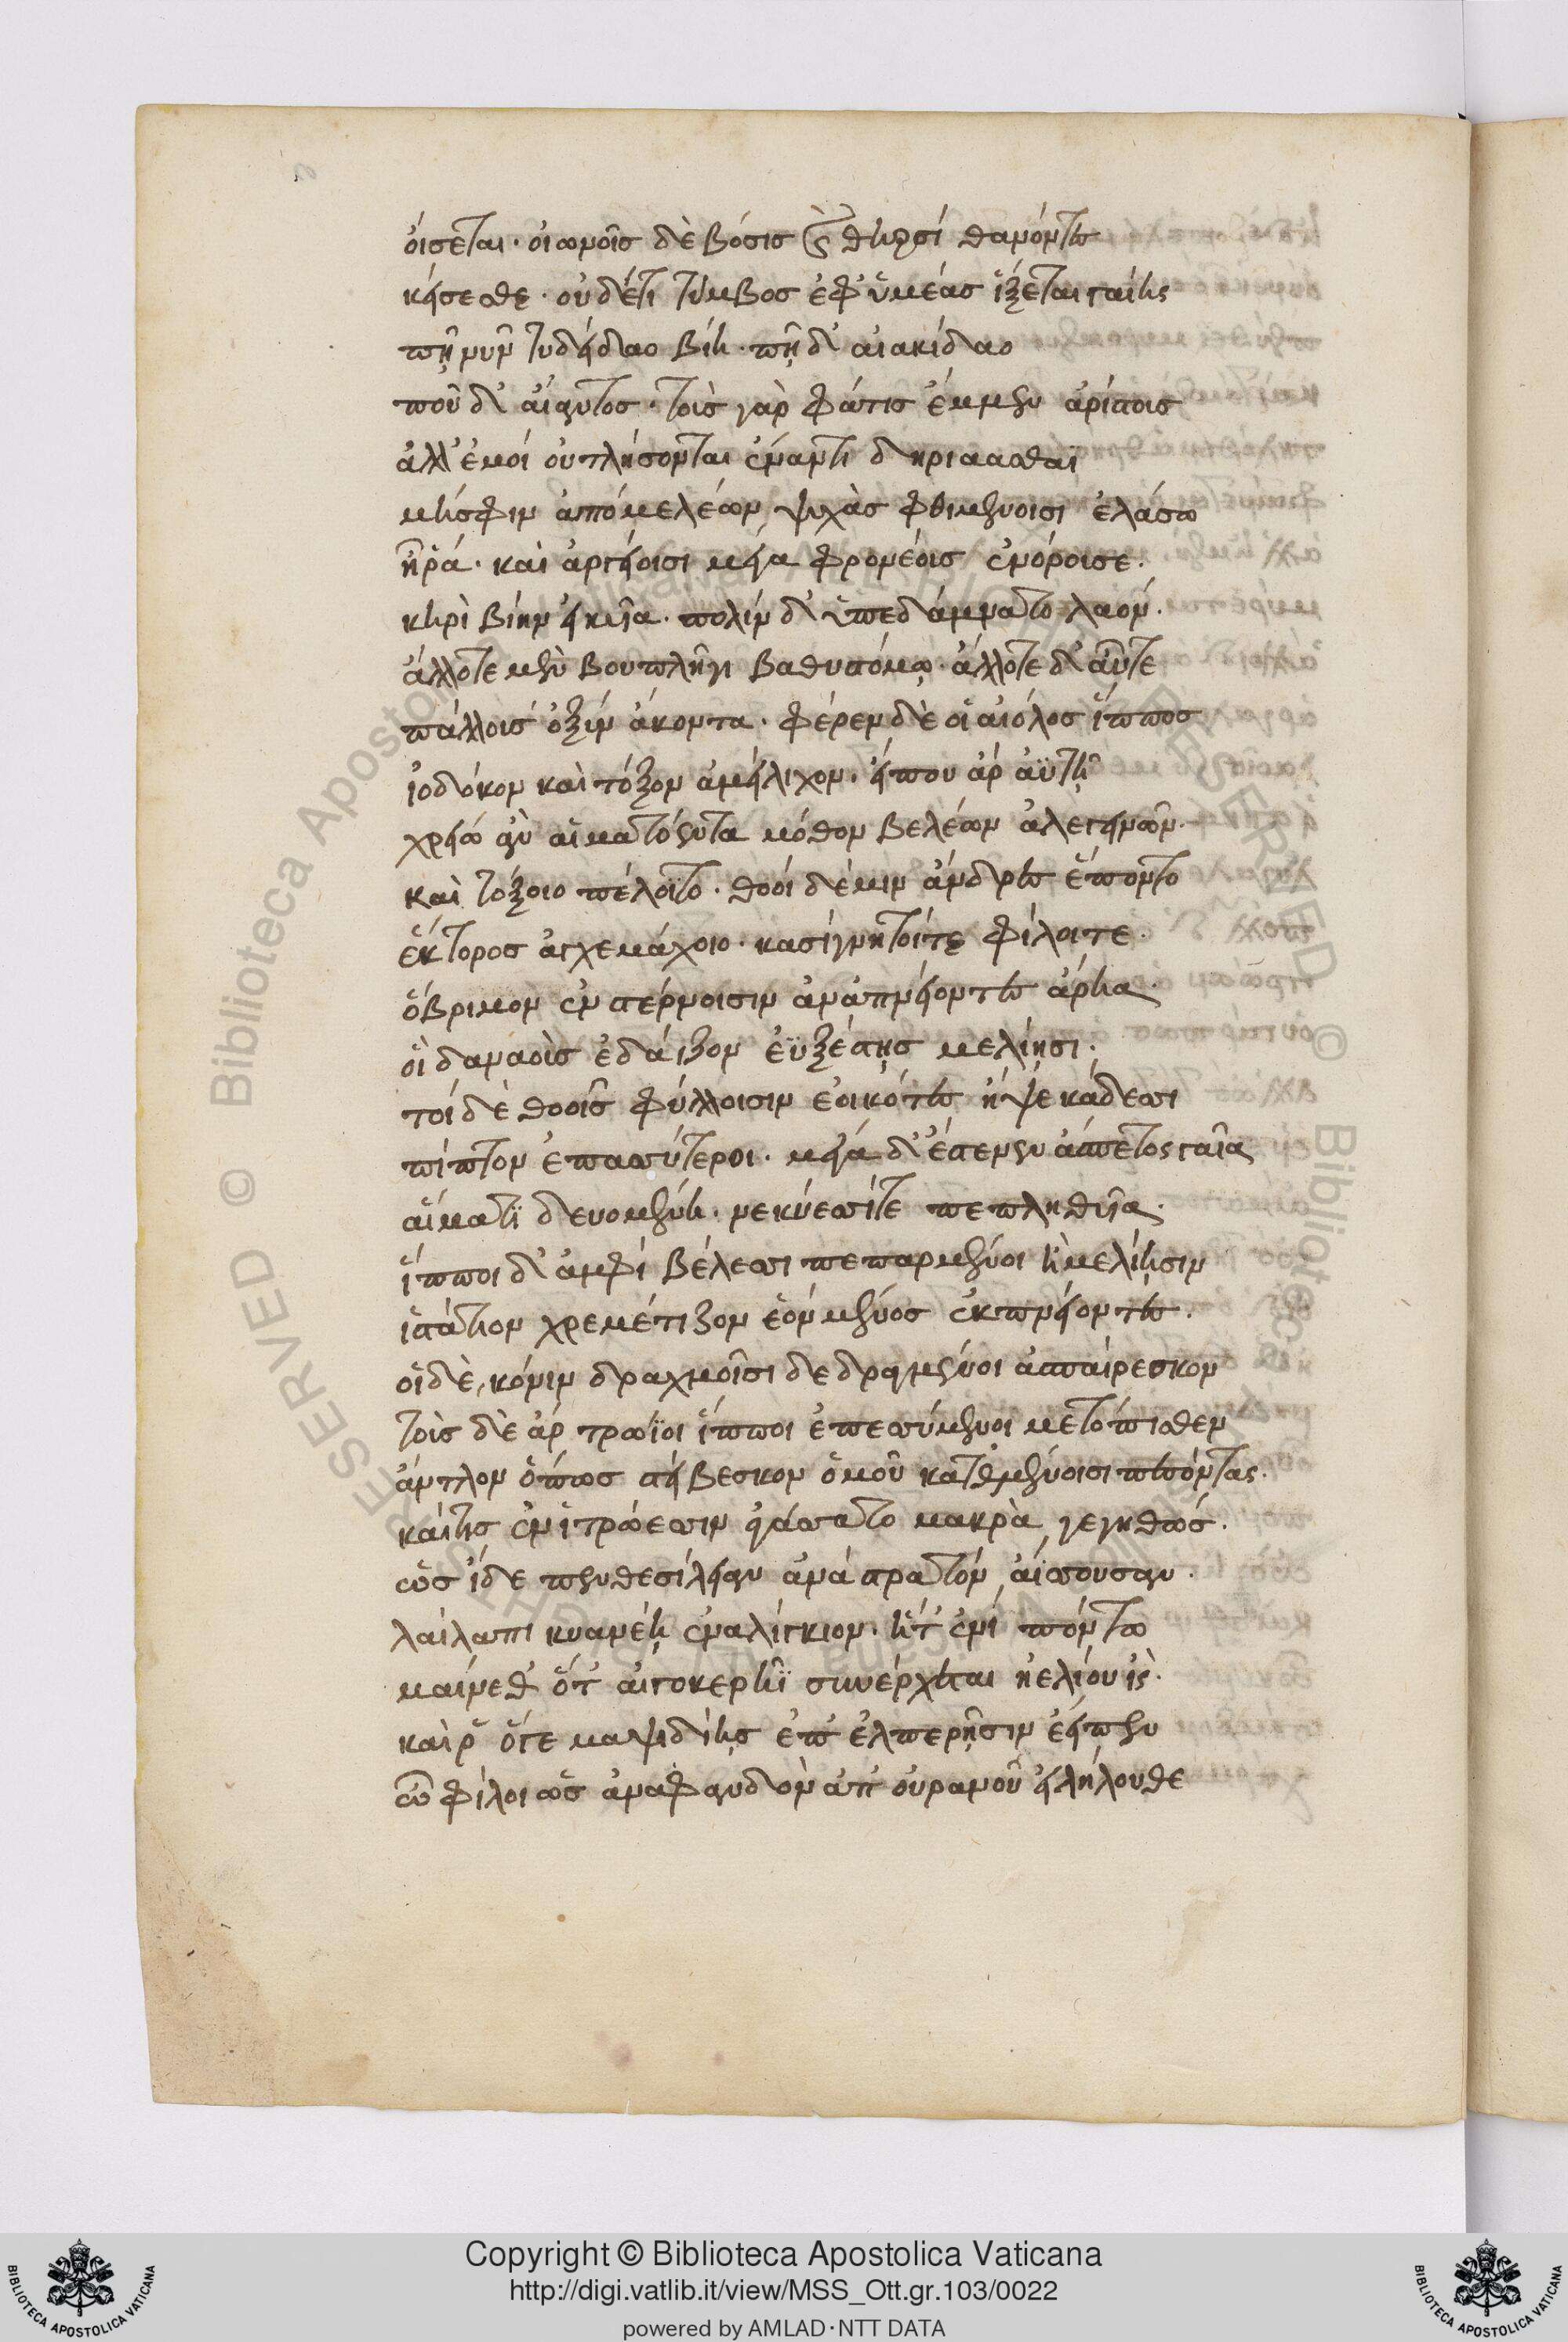 ὀίσεται· οἰωνοῖς δὲ βόσις καὶ θηρσὶ θανόντες
κείσεσθε· οὐδέτι τύμβος ἐφ' ὑμέας ἵξεται γαίης
πῆ νῦν τυδείδαο βίη· πῆ δ' αἰακίδαο
ποῦ δ' αἴαντος· τοὺς γὰρ φάτις ἔμμεν ἀρίστους
ἀλλ' ἐμοὶ οὐ τλήσονται ἐναντι δηριάασθαι
μήσφιν ἀπὸ μελέων ψυχὰς φθιμένοισι ἐλάσω
ἦ ῥά· καὶ ἀργείοισι μέγα φρονέοισ' ἐνόρουσε·
κηρὶ βίην εἰκυῖα· πολὺν δ' ὑπεδάμνατο λαόν·
ἄλλοτε μὲν βουπλῆγι βαθυστόμω· ἄλλοτε δ' αὖτε
πάλλουσ' ὀξὺν ἄκοντα· φέρεν δέ οἱ αἰόλος ἵππος
ἰοδόκον καὶ τόξον ἀμείλιχον· εἴπου ἄρ αὐτῆ
χρειὼ ἀν' αἱματόεντα μόθον βελέων ἀλεγεινῶν
καὶ τόξοιο πέλοιτο· θοοὶ δέ μιν ἄνδρες ἕποντο
ἕκτορος ἀγχεμάχοιο· κασίγνητοί τε φίλοι τε·
ὄβριμον ἐν στέρνοισιν ἀναπνείοντες ἄρηα·
οἳ δαναοὺς ἐδάιζον ἐϋξέστῃς μελίῃσι·
τοὶ δὲ θοοῖς φύλλοισιν ἐοικότες ἢ ψεκάδεσσι
πίπτον ἐπασσύτεροι· μέγα δ' ἔστενεν ἄσπετος γαῖα
αἵματι δευομένη· νεκύεσσί τε πεπληθυῖα·
ἵπποι δ' ἀμφὶ βέλεσσι πεπαρμένοι ἢ μελίῃσιν
ὑστάτιον χρεμέτιζον ἑὸν μένος ἐκπνείοντες·
οἱ δὲ, κόνιν δραχμοῖσι δεδραγμένοι ἀσπαίρεσκον
τοὺς δὲ ἄρ τρώϊοι ἵπποι ἐπεσσύμενοι μετόπισθεν
ἄντλον ὅπως στείβεσκον ὁμοῦ κταμένοισι πεσόντας·
καί τις ἐνὶ τρώεσσιν ἀγάσσατο μακρὰ γεγηθώς·
ὡς ἴδε πενθεσίλειαν ἀνὰ στρατὸν ἀίσσουσαν·
λαίλαπι κυανέῃ ἐναλίγκιον· ἥτ' ἐνὶ πόντω
μαίνεθ' ὅτ' αἰγοκερῆϊ συνέρχεται ἠελίου ἴς·
καί ῥ' ὅγε μαψιδίῃς ἐπ' ἐλπωρῆσιν ἔειπεν
ὦ φίλοι ὡς ἀναφανδὸν ἀπ' οὐρανοῦ εἰλήλουθε
Copyright © Biblioteca Apostolica Vaticana
http://digi.vatlib.it/view/MSS_Ott.gr.103/0022
powered by AMLAD·NTT DATA